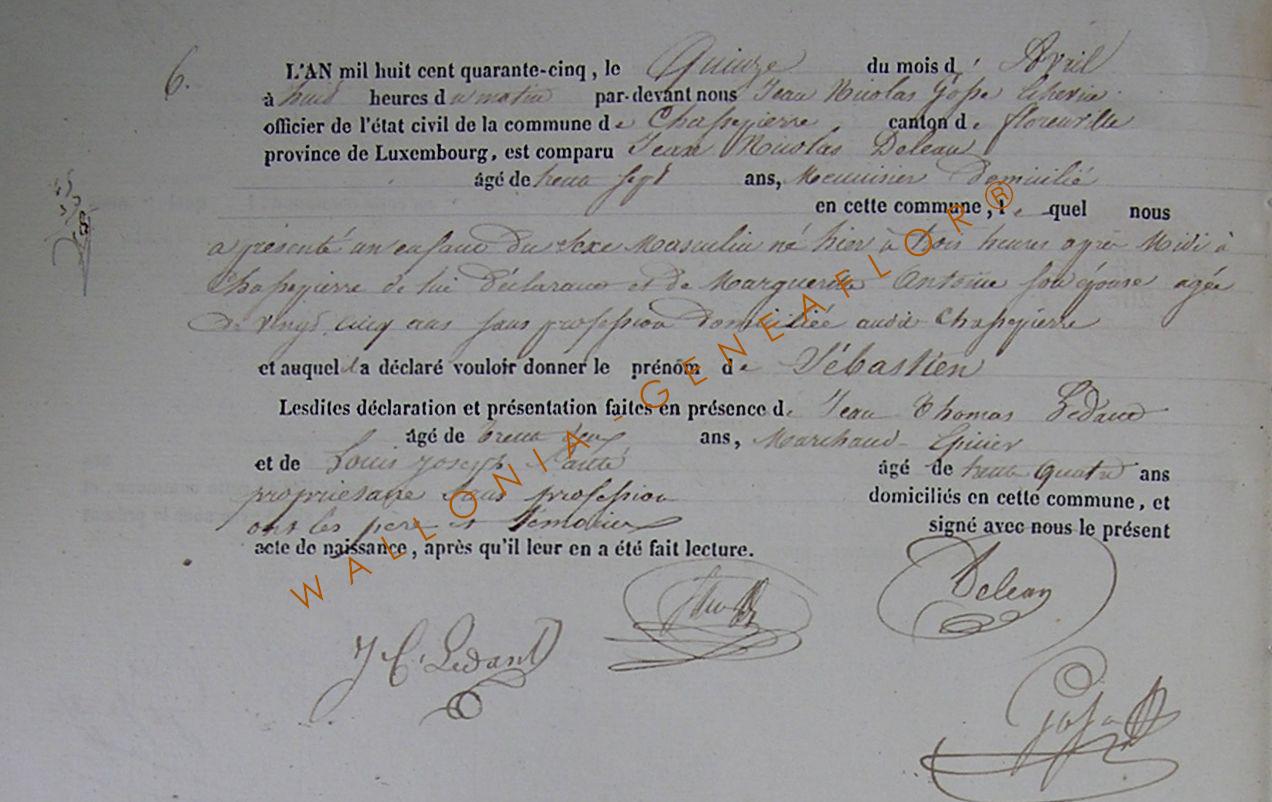 6.
L'AN mil huit cent quarante-cinq, le Quinze du mois d' Avril
à huit heures du matin par-devant nous Jean Nicolas
officier de l'état civil de la commune de Chassepierre canton de florenville
province de Luxembourg, est comparu Jean Nicolas Deleau
âgé de trente sept ans, domicilié
en cette commune, le quel nous
a présenté un enfant du sexe Masculin né hier à trois heures après Midi à
Chassepierre de lui déclarant et de Marguerite Antoine son épouse agée
de vingt cinq ans sans profession domiciliée audit Chassepierre
et auquel il a déclaré vouloir donner le prénom de Sébastien
Lesdites déclaration et présentation faites en présence de Jean Thomas Ledant
âgé de trente deux ans, Marchand Epicier
et de Louis Joseph âgé de trente quatre ans
propriétaire sans profession domiciliés en cette commune, et
ont les père et témoins signé avec nous le présent
acte de naissance, après qu'il leur en a été fait lecture.
Deleau
J T Ledant
WALLONIA-GENEAFLOR®